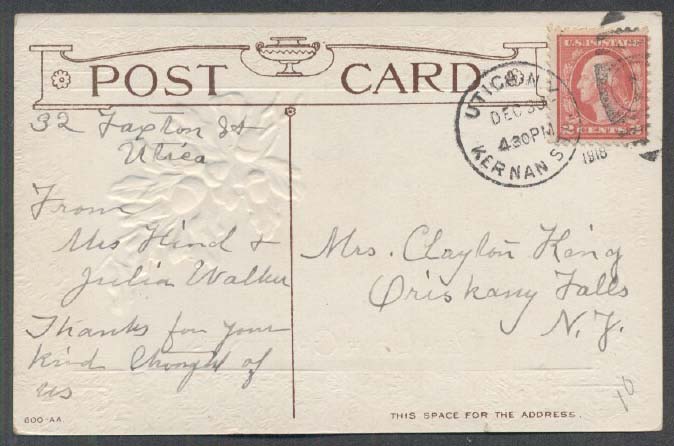 POST CARD
U.S. POSTAGE
2 CENTS 2
UTICA N.Y.
DEC 30
4:30 PM
1918
KERNAN S
32 Faxton St
Utica
From
Mrs Hind &
Julia Walker
Thanks for your
kind thought of
us
Mrs. Clayton King
Oriskany Falls
N.Y.
10
600-AA
THIS SPACE FOR THE ADDRESS.